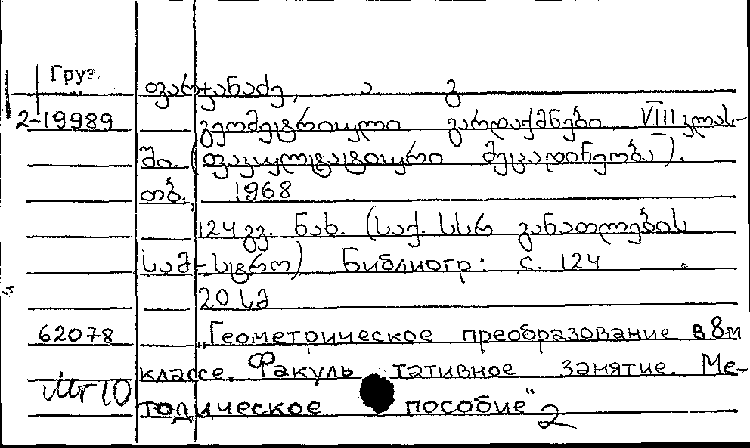 Груз.
ფარჯანაძე, ა გ
2-19989 გეომეტრიული გარდაქმნები VIII კლას-
ში. (ფაკულტატიური მეცადინეობა).
თბ. 1968
124 გვ. ნახ. (საქ. სსრ განათლების
სამ-სტრო) Библиогр: с. 124
20 სმ
62078 „Геометрическое преобразование в 8м
классе. Факуль тативное занятие. Ме-
Мг10 тодическое пособие" 2